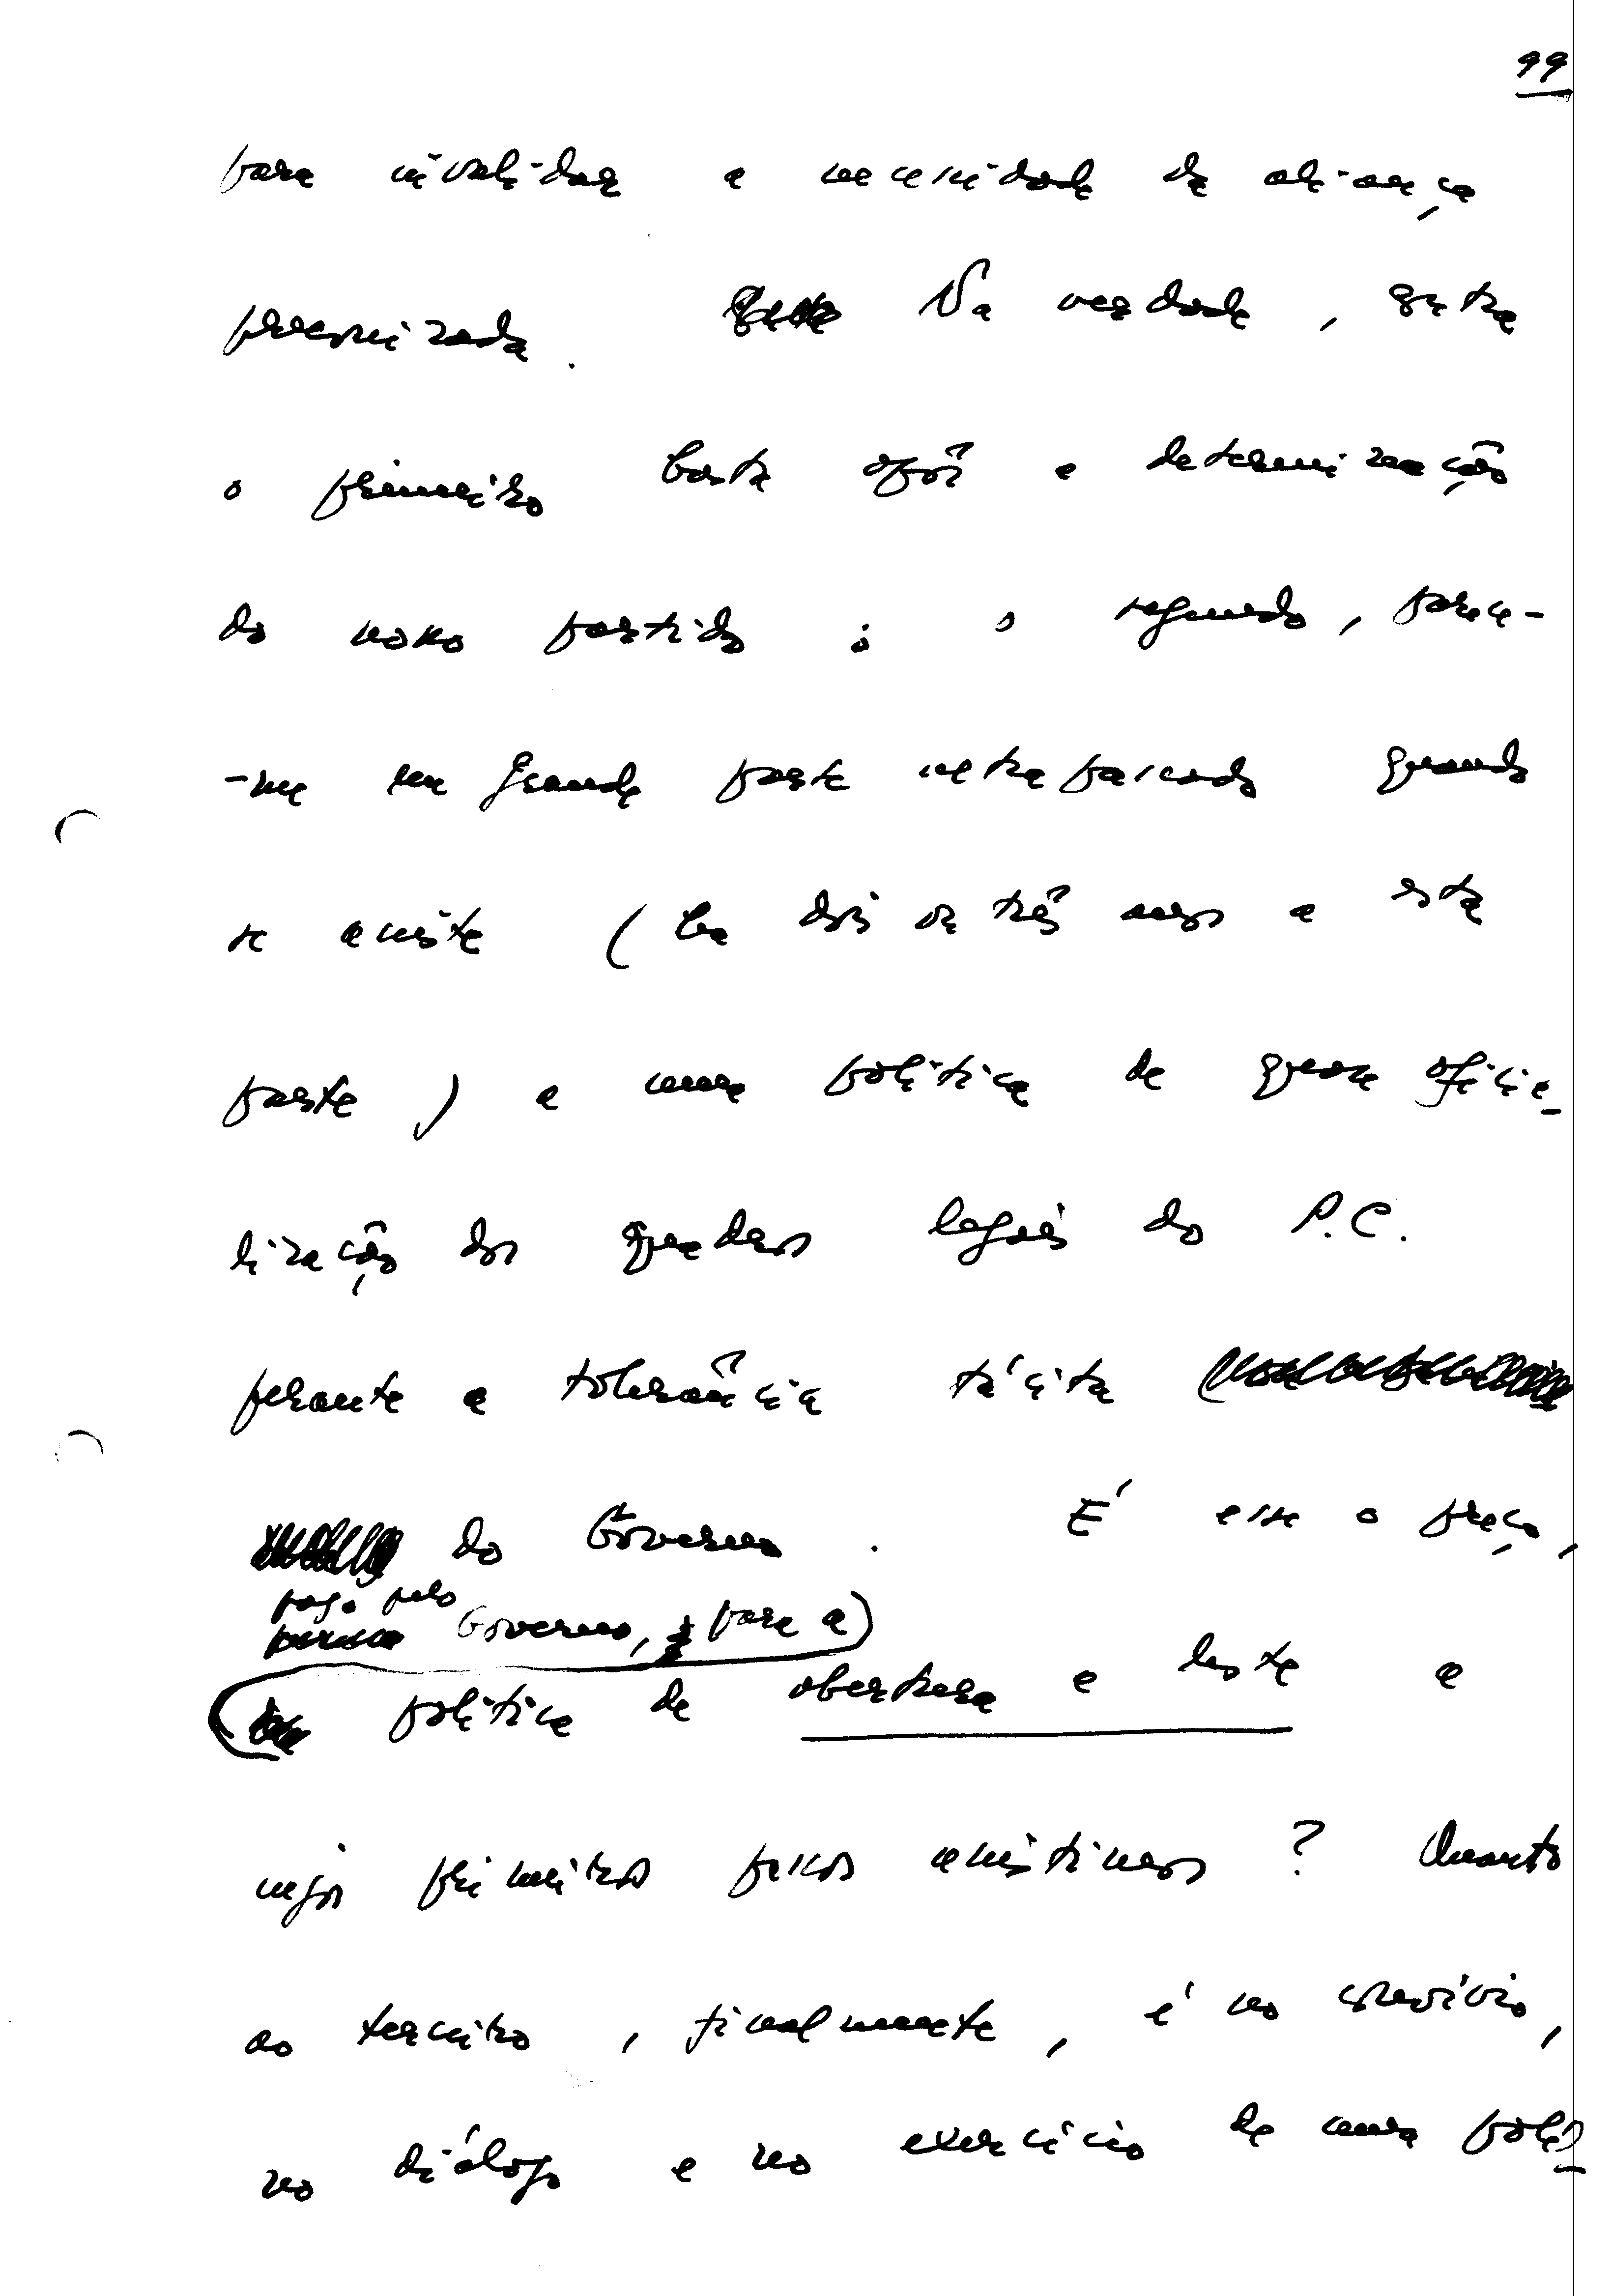 99
para invalidar a necessidade da aliança
preconizada. Na verdade, contra
o primeiro basta opôr a determinação
do novo partido; o segundo, parece-
-me em grande parte ultrapassado quando
se assiste (ha dois ou três anos a esta
parte) a uma política de quase oficia-
lização dos quadros legais do P.C.
perante a tolerância tácita
do Governo. É esse o preço,
pago pelo Governo, para a
política de abertura a leste a
cujos primeiros passos assistimos? Quanto
ao terceiro, finalmente, é no convívio,
no diálogo e no exercício de uma polí-